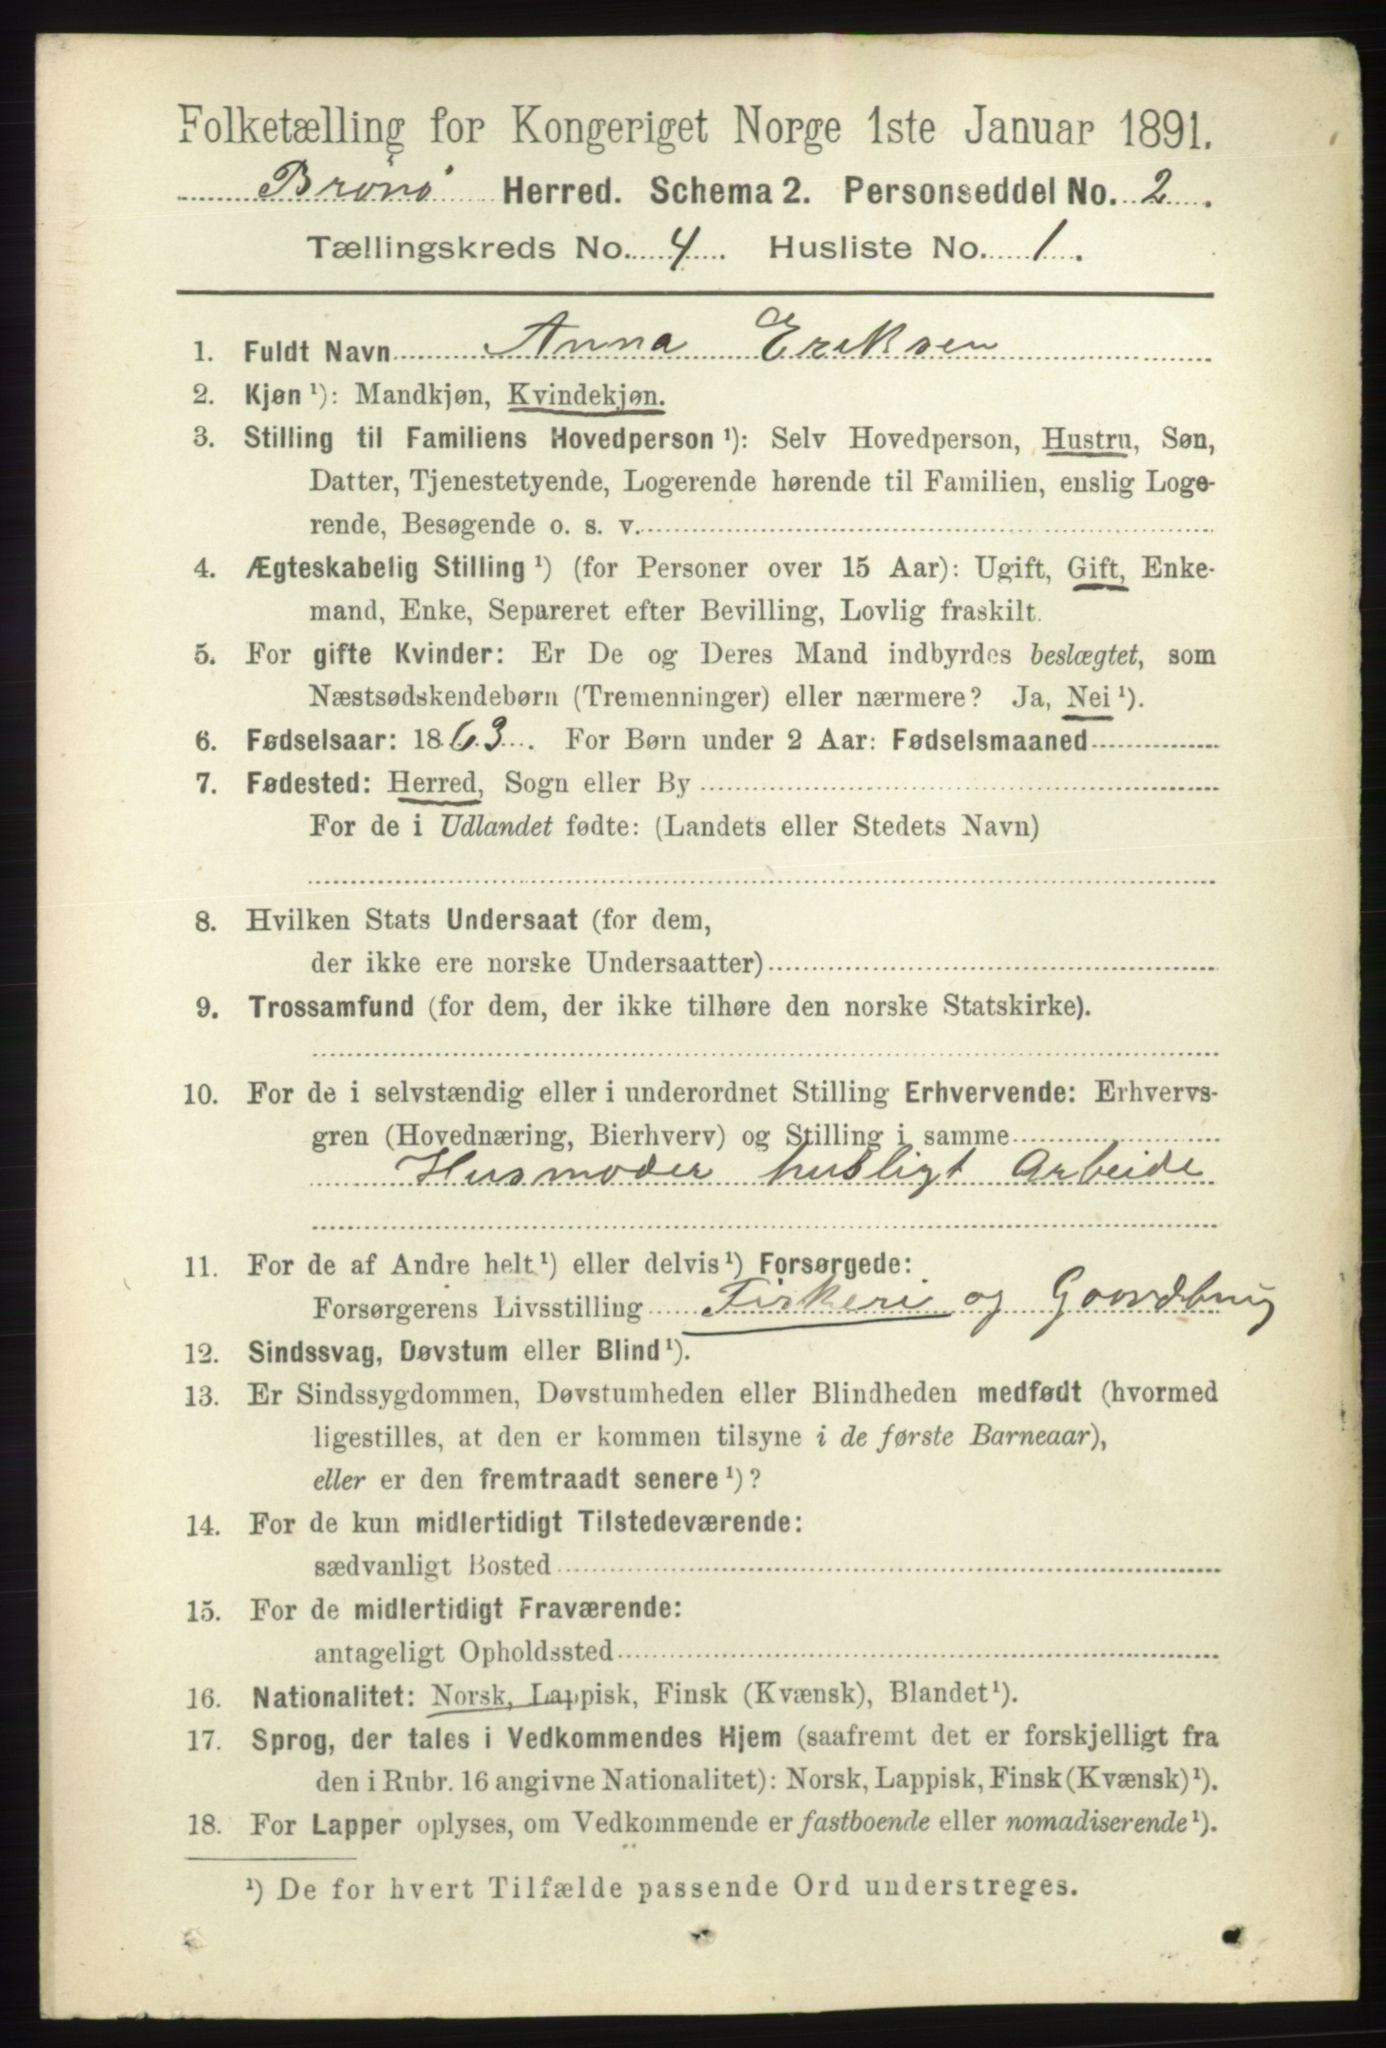 Folketælling for Kongeriget Norge 1ste Januar 1891.
Brønø Herred. Schema 2. Personseddel No. 2.
Tællingskreds No. 4. Husliste No. 1.
1. Fuldt Navn Anna Eriksen
2. Kjøn ¹): Mandkjøn, Kvindekjøn.
3. Stilling til Familiens Hovedperson ¹): Selv Hovedperson, Hustru, Søn,
Datter, Tjenestetyende, Logerende hørende til Familien, enslig Loge-
rende, Besøgende o. s. v.
4. Ægteskabelig Stilling ¹) (for Personer over 15 Aar): Ugift, Gift, Enke-
mand, Enke, Separeret efter Bevilling, Lovlig fraskilt.
5. For gifte Kvinder: Er De og Deres Mand indbyrdes beslægtet, som
Næstsødskendebørn (Tremenninger) eller nærmere? Ja, Nei ¹).
6. Fødselsaar: 1863. For Børn under 2 Aar: Fødselsmaaned
7. Fødested: Herred, Sogn eller By
For de i Udlandet fødte: (Landets eller Stedets Navn)
8. Hvilken Stats Undersaat (for dem,
der ikke ere norske Undersaatter)
9. Trossamfund (for dem, der ikke tilhøre den norske Statskirke).
10. For de i selvstændig eller i underordnet Stilling Erhvervende: Erhvervs-
gren (Hovednæring, Bierhverv) og Stilling i samme
Husmoder husligt Arbeide
11. For de af Andre helt ¹) eller delvis ¹) Forsørgede:
Forsørgerens Livsstilling Fiskeri og Gaardbrug
12. Sindssvag, Døvstum eller Blind ¹).
13. Er Sindssygdommen, Døvstumheden eller Blindheden medfødt (hvormed
ligestilles, at den er kommen tilsyne i de første Barneaar),
eller er den fremtraadt senere ¹)?
14. For de kun midlertidigt Tilstedeværende:
sædvanligt Bosted
15. For de midlertidigt Fraværende:
antageligt Opholdssted
16. Nationalitet: Norsk, Lappisk, Finsk (Kvænsk), Blandet ¹).
17. Sprog, der tales i Vedkommendes Hjem (saafremt det er forskjelligt fra
den i Rubr. 16 angivne Nationalitet): Norsk, Lappisk, Finsk (Kvænsk) ¹).
18. For Lapper oplyses, om Vedkommende er fastboende eller nomadiserende ¹).
¹) De for hvert Tilfælde passende Ord understreges.